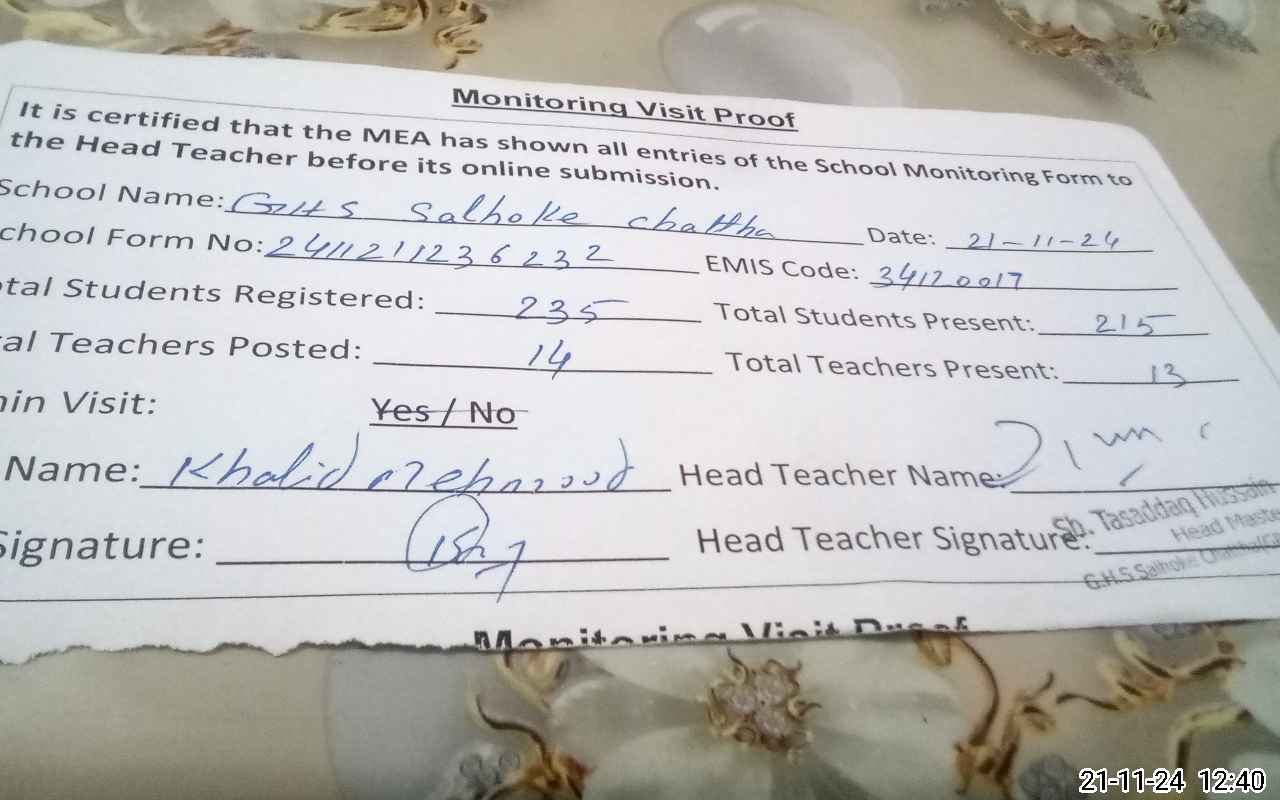 Monitoring Visit Proof
It is certified that the MEA has shown all entries of the School Monitoring Form to
the Head Teacher before its online submission.
School Name: GHS Salhoke Chattha Date: 21-11-24
chool Form No: 2411211236232 EMIS Code: 34120017
tal Students Registered: 235 Total Students Present: 215
al Teachers Posted: 14 Total Teachers Present: 13
in Visit: Yes / No
Name: Khalid Mehmood Head Teacher Name:
Signature: Head Teacher Signature:
Sh. Tasaddaq Hussain
Head Maste
G.H.S Salhoke
Monitoring Visit Proof
21-11-24 12:40